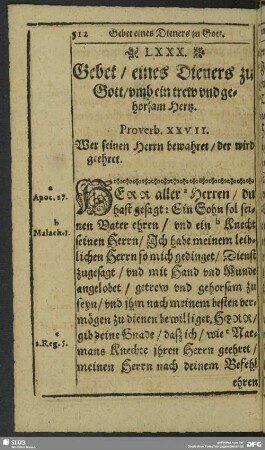 512 Gebet eines Dieners zu Gott.
LXXX.
Gebet / eines Dieners zu
Gott / vmb ein trew vnd ge-
horsam Hertz.
Proverb. XXVII.
Wer seinen Herrn bewahret / der wird
geehret.
a
Apoc. 17.
HERR aller a Herren / du
hast gesagt: Ein Sohn sol sei-
b
Malach. 1.
nen Vater ehren / vnd ein b Knecht
seinen Herrn / Ich habe meinem leib-
lichen Herrn so mich gedinget / Dienst
zugesagt / vnd mit Hand vnd Munde
angelobet / getrew vnd gehorsam zu
seyn / vnd jhm nach meinem besten ver-
mögen zu dienen bewilliget. HERR /
c
2. Reg. 5.
gib deine Gnade / daß ich / wie c Nae-
mans Knechte jhren Herrn geehret /
meinen Herrn nach deinem Befehl
ehren
SLUB
DFG